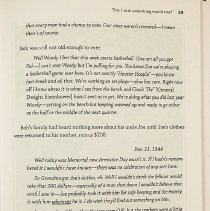 "Boy I wish something would start" 39
that every man had a chance to vote. Our votes weren't censored—I mean
theirs of course.
Bob was still not old enough to vote.
Well Woody I bet that this week starts basketball. Give em all you got
Pal—I can't wait Woody but I'm pulling for you. You know Son we're playing
a basketball game over here. It's not exactly "Hoosier Hoople"—you know
fast break and all that. We're working on set plays—slow but sure. Right now
all I know about it is what I see from the bench and Coach "The" [General
Dwight Eisenhower] hasn't sent us in yet. We're doing what you did last year
Woody—setting on the bench but keeping warmed up and ready to go either
at the half or the middle of the next quarter.
Bob's family had heard nothing more about his uncle Joe until Joe's clothes
were returned to his mother, minus $200.
Nov. 11, 1944
Well today was Memorial now Armistice Day wasn't it. If I hadn't
been there I wouldn't have known—there was no celebration of any sort here.
So Grandma got Joe's clothes. Well I wouldn't think the fellows would
take that 200 dollars—specially of a man that down I wouldn't believe that
until I saw it—Joe probably took it with him for safe keeping and the money
is with him wherever he is. I do wish they'd find out something on him.